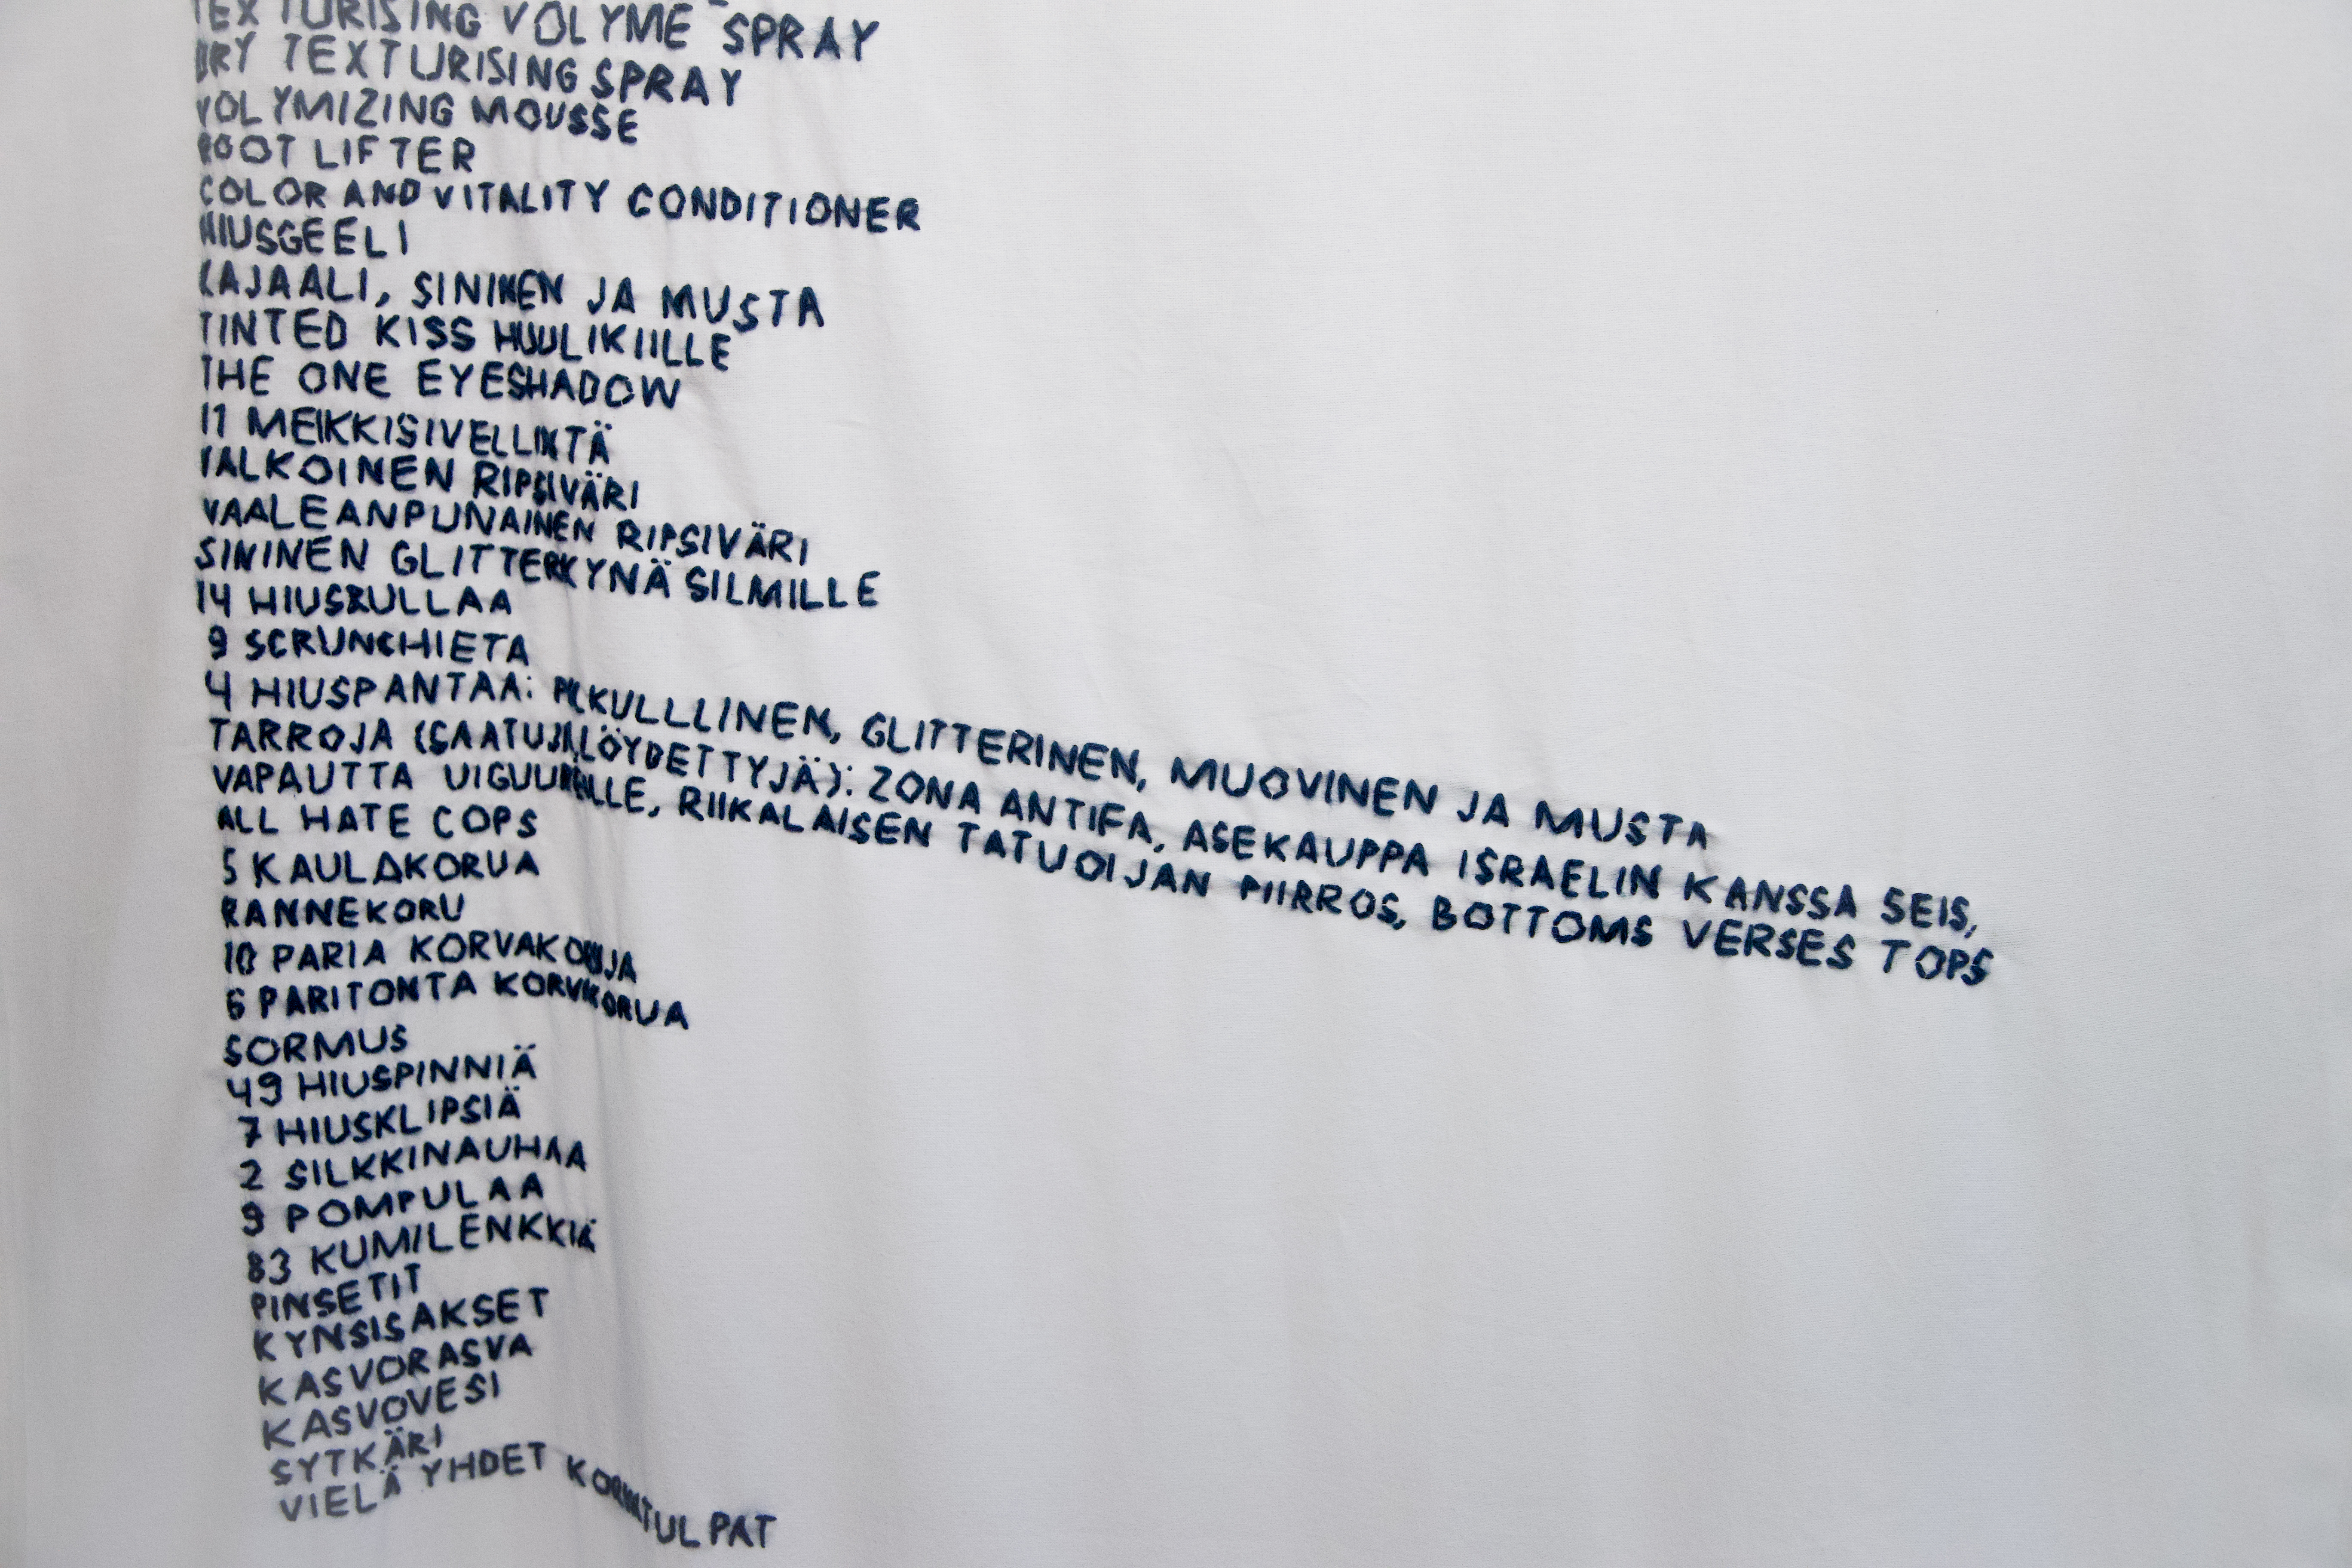 TEXTURISING VOLYME SPRAY
DRY TEXTURISING SPRAY
VOLYMIZING MOUSSE
ROOT LIFTER
COLOR AND VITALITY CONDITIONER
HIUSGEELI
KAJAALI, SININEN JA MUSTA
TINTED KISS HUULIKIILLE
THE ONE EYESHADOW
11 MEIKKISIVELLINTÄ
VALKOINEN RIPSIVÄRI
VAALEANPUNAINEN RIPSIVÄRI
SININEN GLITTERKYNÄ SILMILLE
14 HIUSRULLAA
9 SCRUNCHIETA
4 HIUSPANTAA: PILKULLLINEN, GLITTERINEN, MUOVINEN JA MUSTA
TARROJA (SAATUJA, LÖYDETTYJÄ): ZONA ANTIFA, ASEKAUPPA ISRAELIN KANSSA SEIS,
VAPAUTTA UIGUUREILLE, RIIKALAISEN TATUOIJAN PIIRROS, BOTTOMS VERSES TOPS
ALL HATE COPS
5 KAULAKORUA
RANNEKORU
10 PARIA KORVAKORUJA
6 PARITONTA KORVAKORUA
SORMUS
49 HIUSPINNIÄ
7 HIUSKLIPSIÄ
2 SILKKINAUHAA
9 POMPULAA
83 KUMILENKKIÄ
PINSETIT
KYNSISAKSET
KASVORASVA
KASVOVESI
SYTKÄRI
VIELÄ YHDET KORVATULPAT